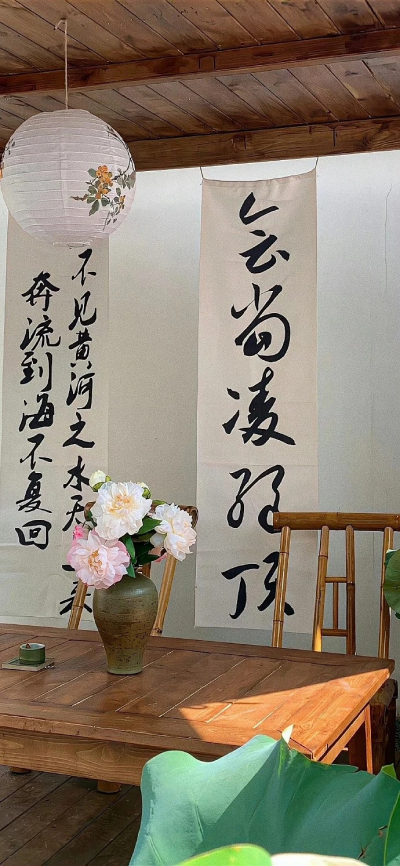 会当凌绝顶
不见黄河之水天
奔流到海不复回